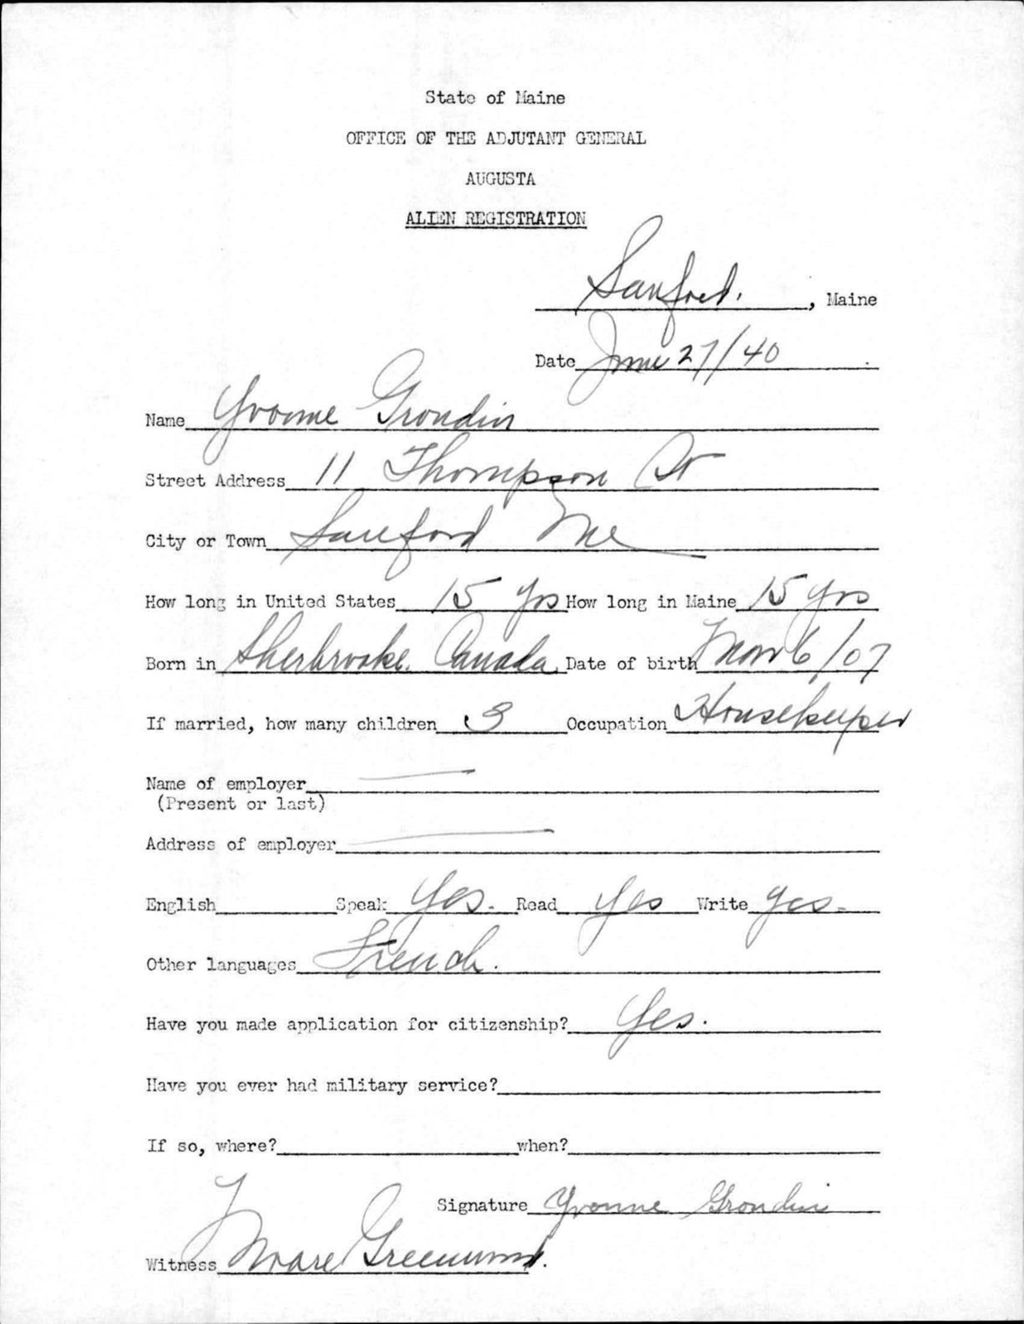 State of Maine
OFFICE OF THE ADJUTANT GENERAL
AUGUSTA
ALIEN REGISTRATION
Sanford, Maine
Date June 27/40
Name Yvonne Grondin
Street Address 11 Thompson St
City or Town Sanford Me
How long in United States 15 yrs How long in Maine 15 yrs
Born in Sherbrooke, Canada Date of birth 6/07
If married, how many children 3 Occupation Housekeeper
Name of employer
(Present or last)
Address of employer
English Speak Yes. Read Yes Write Yes.
Other languages French.
Have you made application for citizenship? Yes.
Have you ever had military service?
If so, where? when?
Signature Yvonne Grondin
Witness